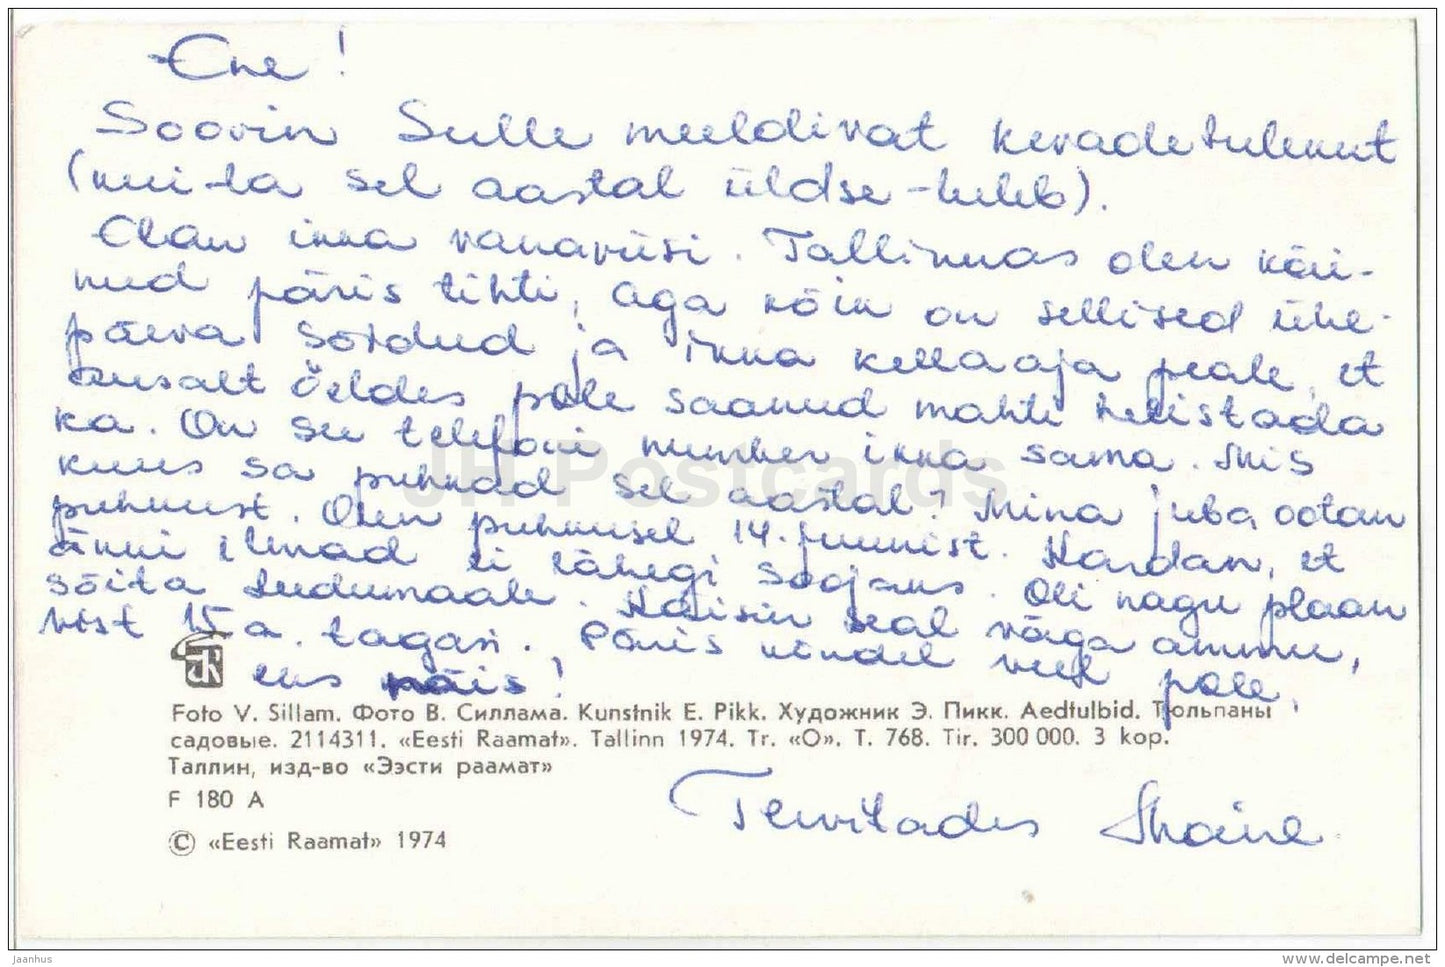 Ene!
Soovin Sulle meeldivat kevadetulekut
(kui ta sel aastal üldse tuleb).
Elan ikka vanaviisi. Tallinnas olen käi-
nud päris tihti, aga kõik on sellised ühe-
päeva sõidud ja ikka kellaaja peale, et
ausalt öeldes pole saanud mahti helistada
ka. On su telefoni number ikka sama. Mis
kuus sa puhkad sel aastal? Mina juba ootan
puhkust. Olen puhkusel 14. juunist. Kardan, et
änni ilmad ei lähegi soojaks. Oli nagu plaan
sõita Leedumaale. Käisin seal väga ammu,
vist 15 a. tagasi. Päris kindel veel pole,
eks näis!
Foto V. Sillam. Фото В. Силлама. Kunstnik E. Pikk. Художник Э. Пикк. Aedtulbid. Тюльпаны
садовые. 2114311. «Eesti Raamat». Tallinn 1974. Tr. «O». T. 768. Tir. 300 000. 3 kop.
Таллин, изд-во «Ээсти раамат»
F 180 A
© «Eesti Raamat» 1974
Tervitades
JH Postcards
jaanhus
www.delcampe.net